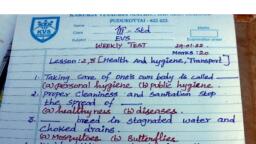 PUDUKOTTAI - 622 422.
KVS
Name
Class III - Std
Marks
Subject EVS
WEEKLY TEST
29.01.22
Marks : 20
Lesson : 2,5 [Health and hygiene, Transport]
1. Taking care of one's own body is called
(a) personal hygiene (b) public hygiene.
2. Proper Cleaniness and sanitation stop
the spread of
(a) healthyness (b) diseases
3. breed in stagnated water and
choked drains.
(a) Mosquitoes (b) Butterflies